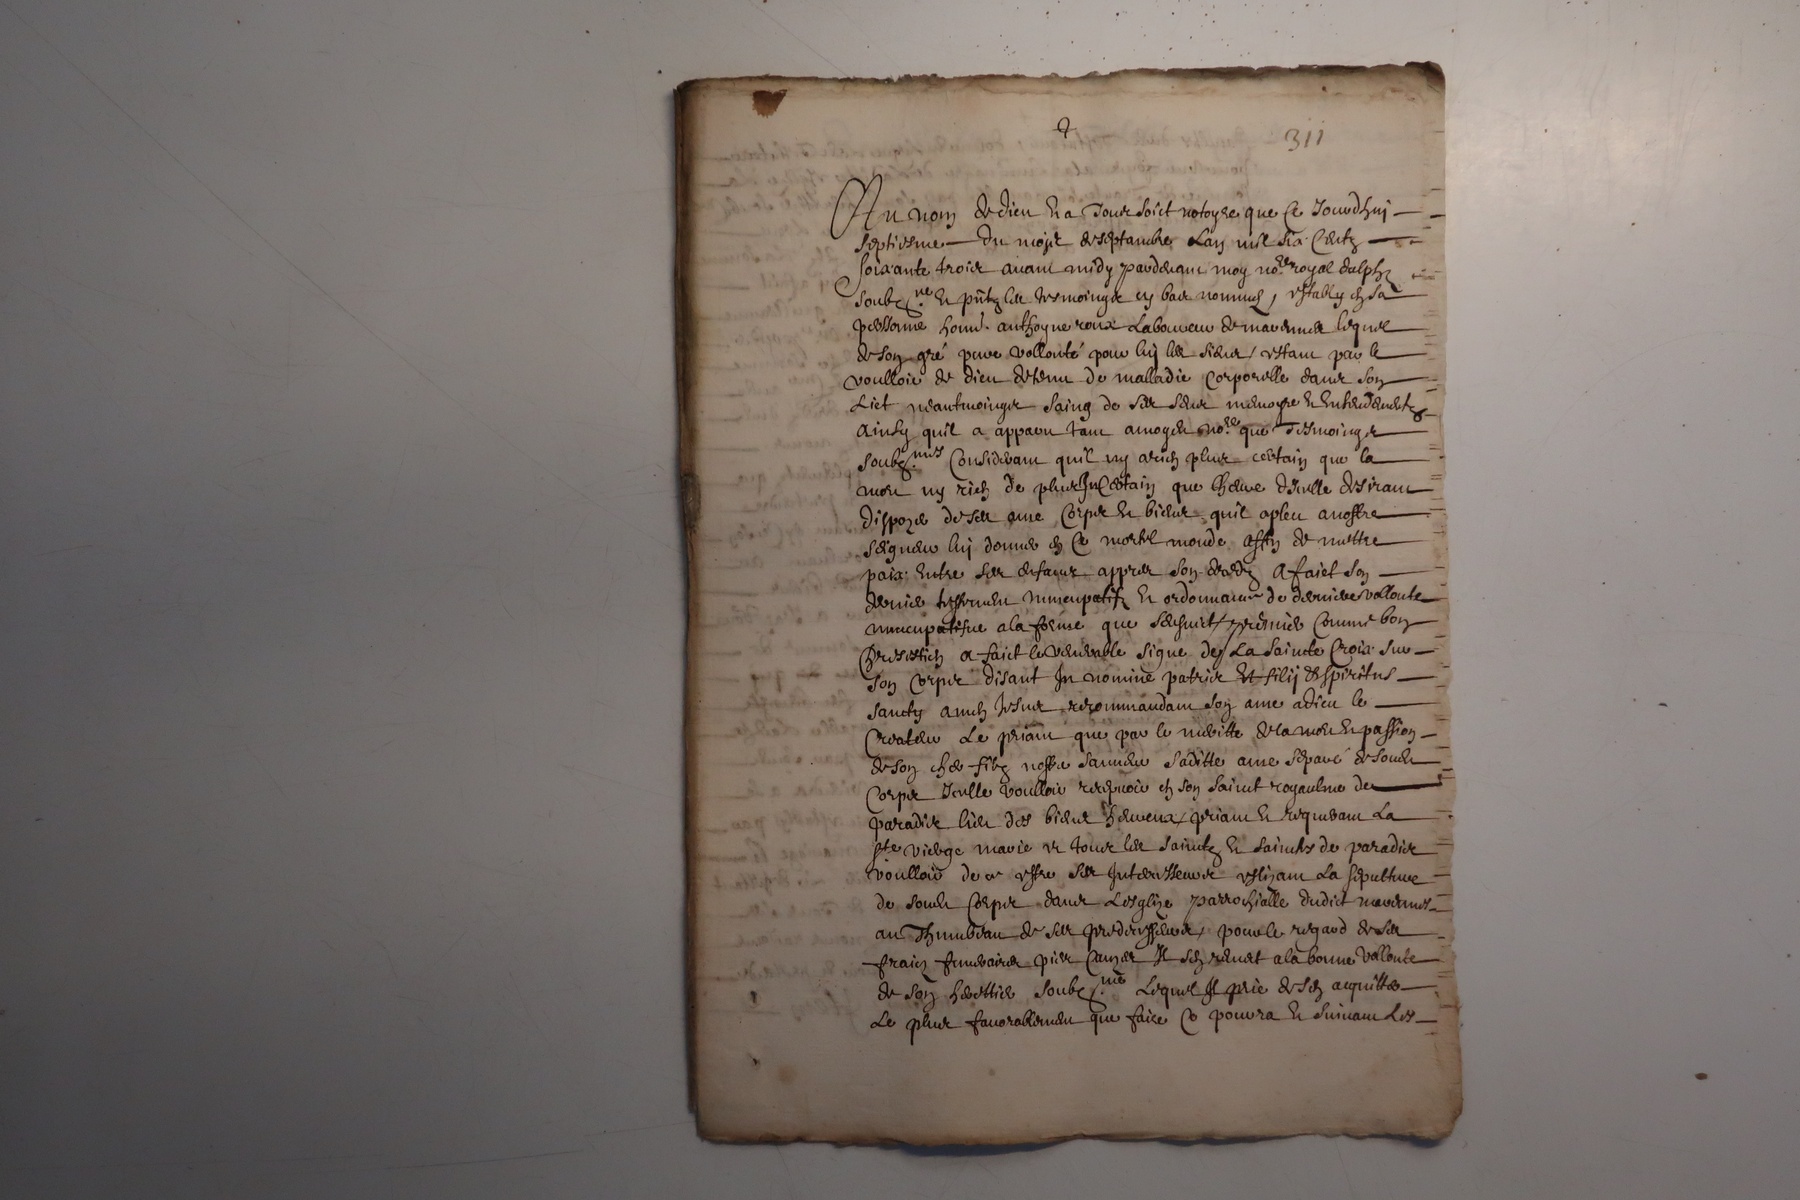 311
Au nom de dieu et a Tous soict notoyre que Ce Jourdhuj
septiesme du mojs de septambre Lan mil six Centz
soixante trois avant midy pardevant moy no.re royal dalph
soubz.ne et pñtz les tesmoings cy bas nommes, establỹ en sa
personne hon.e anthoyne roux Laboureur de mavennes lequel
de son gré pure vollonté pour luj les siens, estant par le
voulloir de dieu detenu de malladie Corporelle dans son
Lict neantmoings saing de ses sens memoyre et Entendement
ainsy quil a apparu tant amoydt no.re que Tesmoings
soubz.nés Considerant quil ny arien plus certain que la
mort ny rien de plus InCertain que lheure dIcelle desirant
dispozer de ses ame Corps et biens quil apleu anostre
seigneur luj donner en Ce mortel monde affin de mettre
paix Entre ses enfans appres son decedz A faict son
dernier testement nuncupatif et ordonnance de derniere vollonte
nuncupatifve ala forme que sensuict, premier Comme bon
Chrestien a faict le venerable signe de La Sainte Croix sur
son Corps disant In nomine patris Et filij Et spiritus
sancty amen Jesus recommandant son ame adieu le
Createur Le priant que par le meritte de la mort et passion
de son cher filz nostre sauveur saditte ame separé de sondt
Corps Icelle voulloir recepvoir en son saint royaulme de
paradis lieu des biens heureux, priant et requerant La
ste vierge marie et tous les saintz et saintes de paradis
voulloir de ce estre ses Intercesseurs eslizant La sepulture
de sondt Corps dans Lesglize parrochialle dudict mavennes
au Thumbeau de ses predecesseurs, pour le regard de ses
fraiz funeraires pies Cauzes Il sen remet ala bonne vollonte
de son herettier soubz.mé Lequel Il prie de sen acquitter
Le plus favorablement que faire Ce pourra et suivant Les